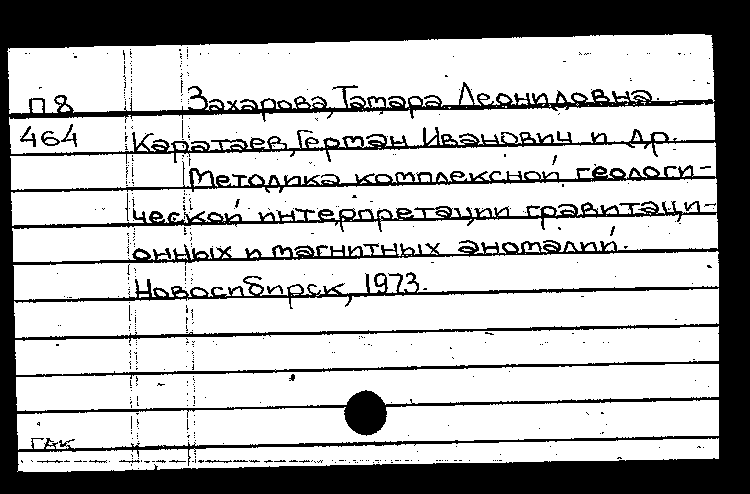 П8 Захарова, Тамара Леонидовна.
464 Каратаев, Герман Иванович и др.
Методика комплексной геологи-
ческой интерпретации гравитаци-
онных и магнитных аномалий.
Новосибирск, 1973.
ГАК